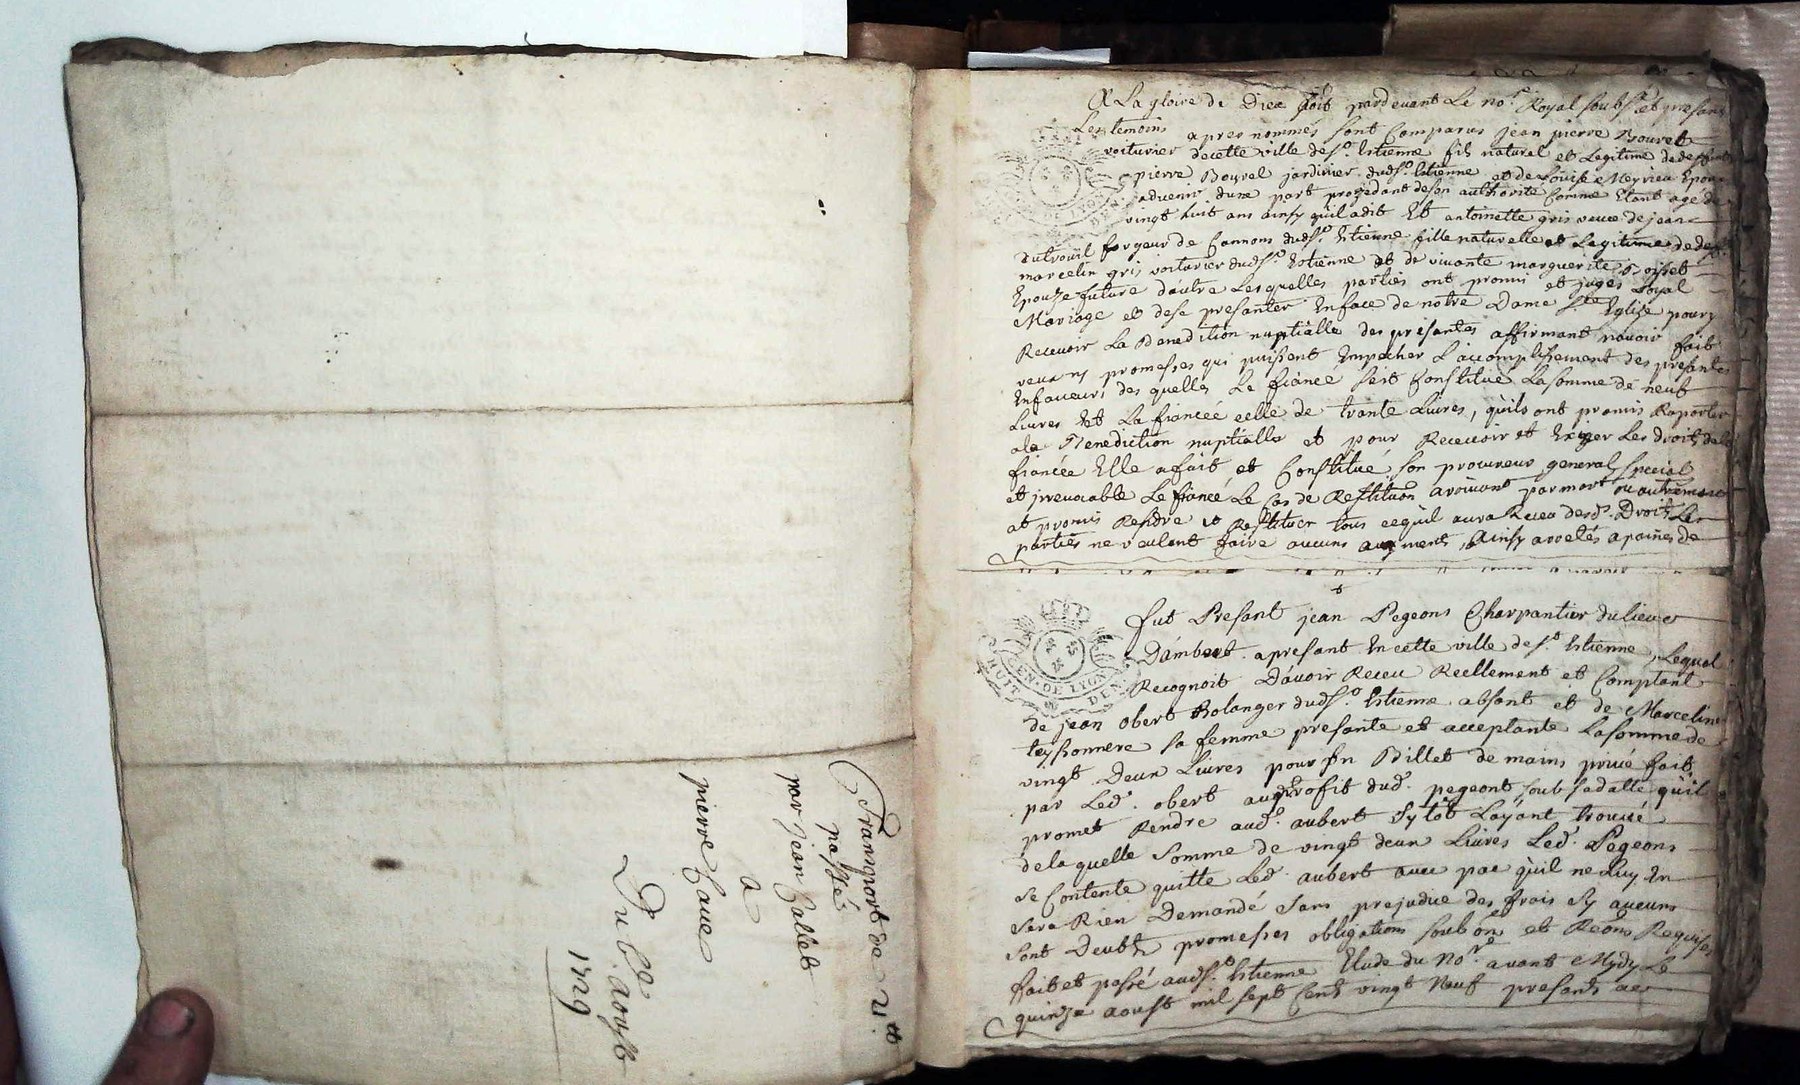 Transport de 21 tt
passé
par jean Gallet
a
pierre faure
Du 6e aoust
1729
A La gloire de Dieu soit pardevant Le no.re Royal soubs.é et presant
Les temoins apres nommés sont Comparus jean pierre Bouvet
voiturier de cette ville de s.t Estienne fils naturel et Legitime de deffunt
pierre Bouvet jardinier dud s.t Estienne et de Louise Meyrieu Epoux
advenir dune part procedant de son authorité Comme Etant agé de
vingt huit ans ainsy quil a dit Et antoinette gris veuve de jean
dutrouil forgeur de Cannons dud s.t Estienne fille naturelle et Legitime de deft.
marcelin gris voiturier dud s.t Estienne et de vivante marguerite Boisset
Epouze future dautre Lesquelles parties ont promis et jugés Loyal
Mariage et de se presanter En face de notre Dame s.te Eglize pour y
Recevoir La Benediction nuptialle des presantes affirmant navoir fait
veux ny promesses qui puissent Empecher L'accomplissement des presantes
En faveurs des quelles Le fiancé s'est Constitué La somme de neuf
Livres Et La fiancée celle de trante Livres, qu'ils ont promis Raporter
a la Benediction nuptialle et pour Recevoir et Exiger Les droits de la
fiancée Elle a fait et Constitué son procureur general special
et jrrevocable Le fiancé Le Cas de Restitu.on arrivant par mort ou autrement
at promis Rendre et Restituer tous ce qu'il aura Receu desd. Droits Les
parties ne veulent faire aucuns augments, Ainsy arretés a paines de
fut Presant jean Pegeons Charpantier du lieu
D'ambert a presant En cette ville de s.t Estienne, Lequel
Recognoit D'avoir Receu Reellement et Comptant
de jean obert Bolanger dud s.t Estienne absent et de Marceline
teyssonnere sa femme presante et acceptante La somme de
vingt Deux Livres pour un Billet de mains privé fait
par Led. obert au proffit dud. pegeont soub sa datte qu'il
promet Rendre aud. aubert Sy tot L'ayant trouvé
de la quelle somme de vingt deux Livres Led. Pegeons
se Contente quitte Led. aubert avec pac qu'il ne Luy En
sera Rien Demandé sans prejudice des frais Sy aucuns
sont Deubts promesses obligations soub.ons et Re.ons Requises
fait et passé aud s.t Estienne Etude du No.re avant Mydy Le
quinze aoust mil sept Cent vingt Neuf presants a
GEN. DE LYON
HUIT DEN.